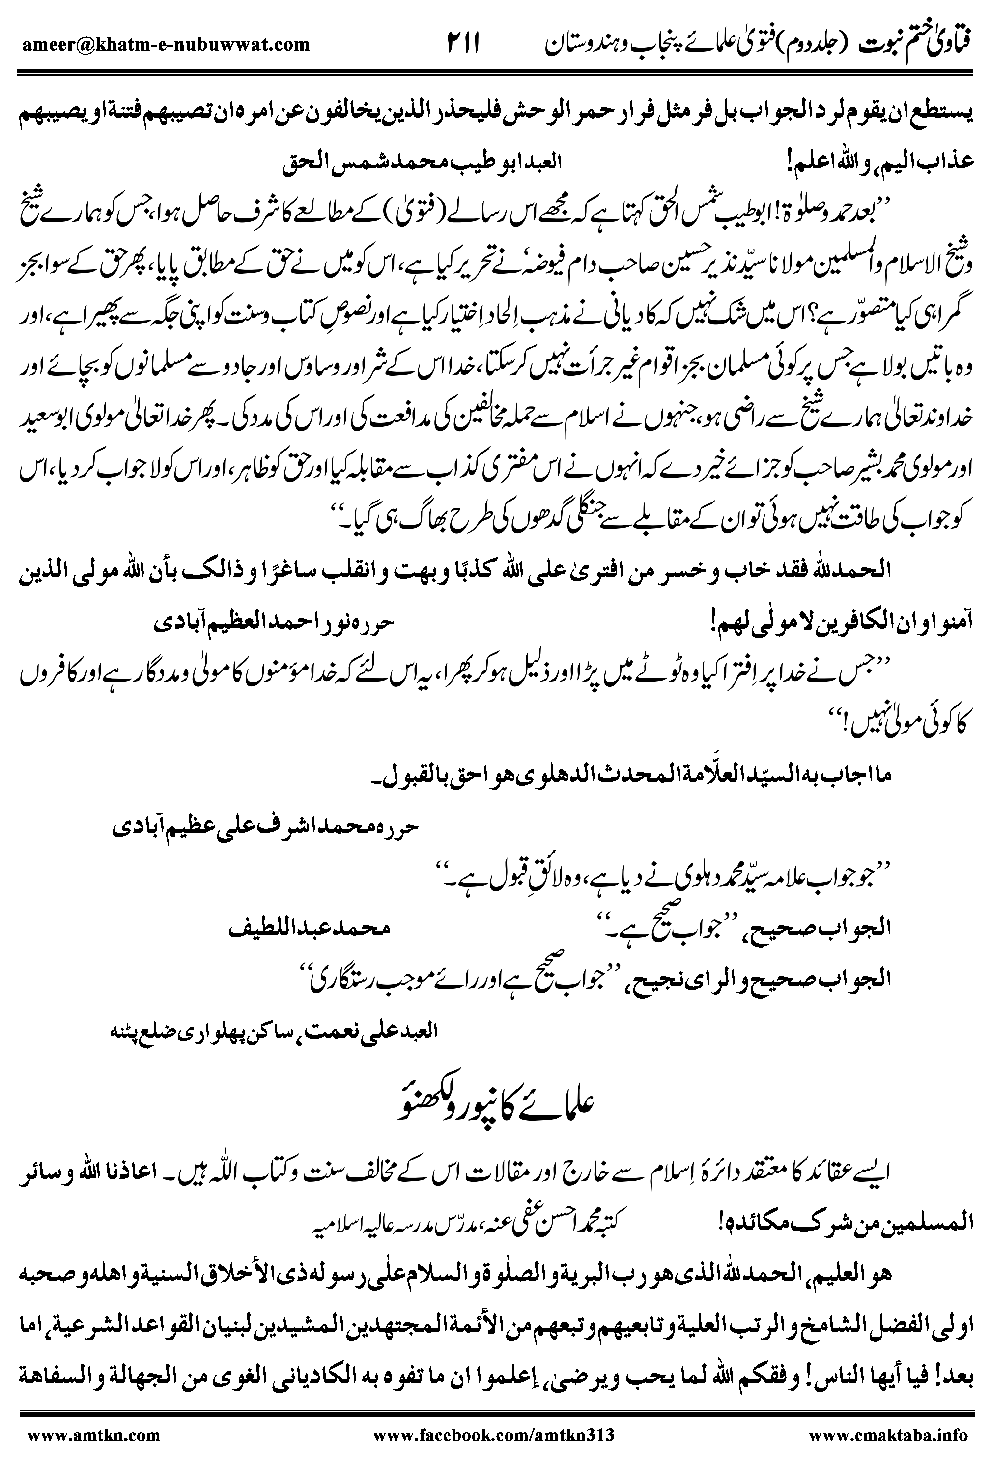 فتاویٰ ختم نبوت (جلد دوم) فتویٰ علمائے پنجاب و ہندوستان ۲۱۱ ameer@khatm-e-nubuwwat.com
یستطع ان یقوم لرد الجواب بل فر مثل فرار حمر الوحش فلیحذر الذین یخالفون عن امرہ ان تصیبھم فتنة او یصیبھم
عذاب الیم، واللہ اعلم! العبد ابو طیب محمد شمس الحق
’’بعد حمد وصلوٰة! ابو طیب شمس الحق کہتا ہے کہ مجھے اس رسالے (فتویٰ) کے مطالعے کا شرف حاصل ہوا، جس کو ہمارے شیخ
وشیخ الاسلام والمسلمین مولانا سیّد نذیر حسین صاحب دام فیوضہ‘ نے تحریر کیا ہے، اس کو میں نے حق کے مطابق پایا، پھر حق کے سوا بجز
گمراہی کیا متصوّر ہے؟ اس میں شک نہیں کہ کادیانی نے مذہب اِلحاد اِختیار کیا ہے اور نصوصِ کتاب وسنت کو اپنی جگہ سے پھیرا ہے، اور
وہ باتیں بولا ہے جس پر کوئی مسلمان بجز اقوام غیر جرأت نہیں کرسکتا، خدا اس کے شر اور وساوس اور جادو سے مسلمانوں کو بچائے اور
خداوند تعالیٰ ہمارے شیخ سے راضی ہو، جنہوں نے اسلام سے حملہ مخالفین کی مدافعت کی اور اس کی مدد کی۔ پھر خدا تعالیٰ مولوی ابوسعید
اور مولوی محمد بشیر صاحب کو جزائے خیر دے کہ انہوں نے اس مفتری کذاب سے مقابلہ کیا اور حق کو ظاہر، اور اس کو لاجواب کردیا، اس
کو جواب کی طاقت نہیں ہوئی تو ان کے مقابلے سے جنگلی گدھوں کی طرح بھاگ ہی گیا۔‘‘
الحمدللہ فقد خاب و خسر من افتریٰ علی اللہ کذبًا و بھت و انقلب ساغرًا و ذالک بأن اللہ مولی الذین
آمنوا و ان الکافرین لا مولٰی لھم! حررہ نور احمد العظیم آبادی
’’جس نے خدا پر اِفترا کیا وہ ٹوٹے میں پڑا اور ذلیل ہوکر پھرا، یہ اس لئے کہ خدا مؤمنوں کا مولیٰ ومددگار ہے اور کافروں
کا کوئی مولیٰ نہیں!‘‘
ما اجاب بہ السیّد العلَّامة المحدث الدھلوی ھو احق بالقبول۔
حررہ محمد اشرف علی عظیم آبادی
’’جو جواب علامہ سیّد محمد دہلوی نے دیا ہے، وہ لائقِ قبول ہے۔‘‘
الجواب صحیح، ’’جواب صحیح ہے۔‘‘ محمد عبداللطیف
الجواب صحیح والرای نجیح، ’’جواب صحیح ہے اور رائے موجب رستگاری‘‘
العبد علی نعمت، ساکن پھلواری ضلع پٹنہ
علمائے کانپور ولکھنؤ
ایسے عقائد کا معتقد دائرۂ اِسلام سے خارج اور مقالات اس کے مخالف سنت وکتاب اللہ ہیں۔ اعاذنا اللہ و سائر
المسلمین من شرک مکائدہ! کتبہ محمد احسن عفی عنہ، مدرّس مدرسہ عالیہ اسلامیہ
ھو العلیم، الحمدللہ الذی ھو رب البریة والصلٰوة والسلام علٰی رسولہ ذی الأخلاق السنیة واھلہ وصحبہ
اولی الفضل الشامخ والرتب العلیة وتابعیھم وتبعھم من الأئمة المجتھدین المشیدین لبنیان القواعد الشرعیة، اما
بعد! فیا أیھا الناس! وفقکم اللہ لما یحب ویرضیٰ، إعلموا ان ما تفوہ بہ الکادیانی الغوی من الجھالة والسفاھة
www.amtkn.com www.facebook.com/amtkn313 www.cmaktaba.info